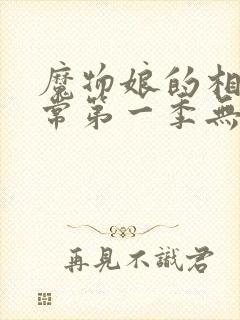 魔物娘的相
常第一季無
再見不識君